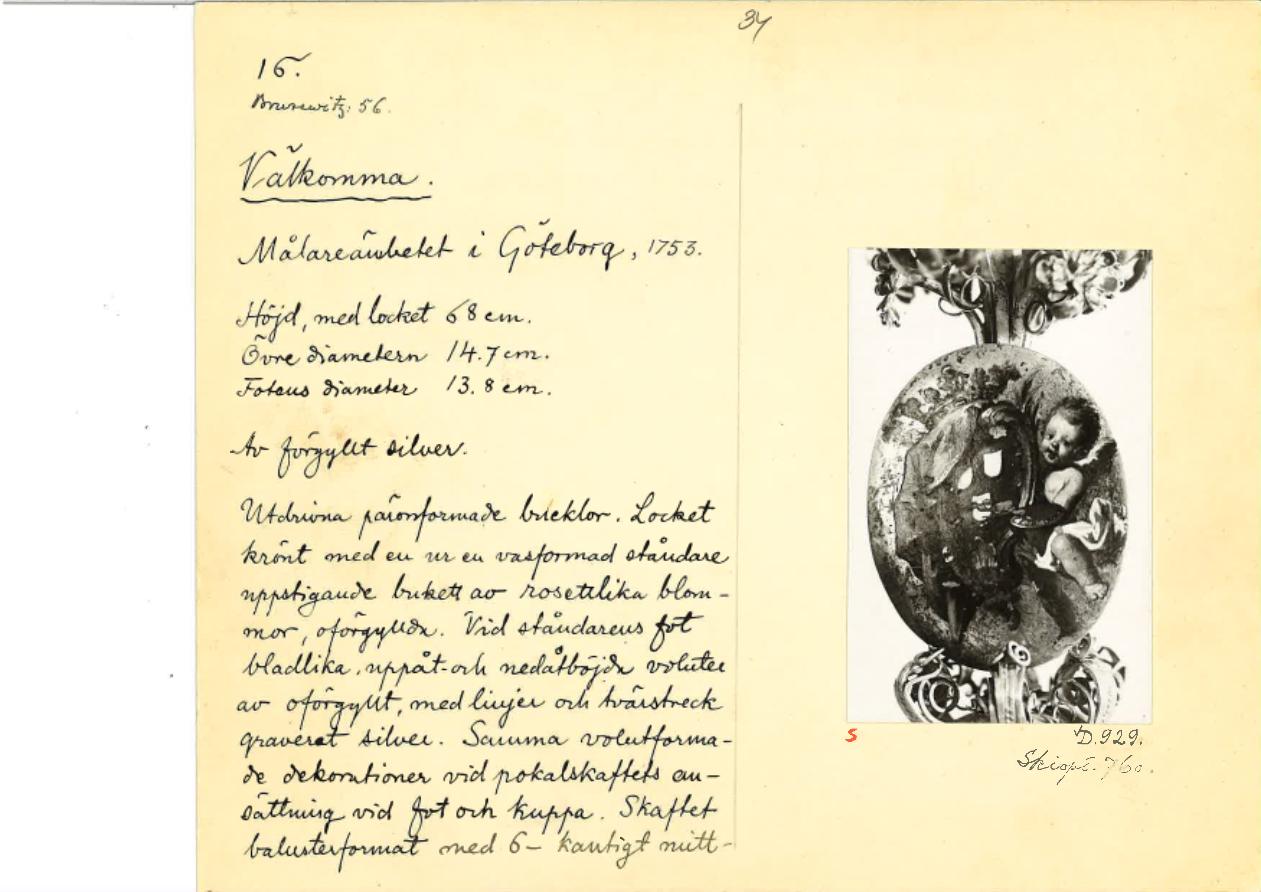 34
16.
Brusewitz: 56.
Välkomma.
Målareämbetet i Göteborg, 1753.
Höjd, med locket 68 cm.
Övre diametern 14.7 cm.
Fotens diameter 13.8 cm.
Av förgyllt silver.
Utdrivna päronformade bucklor. Locket
krönt med en ur en vasformad ståndare
uppstigande bukett av rosettlika blom-
mor, oförgyllda. Vid ståndarens fot
bladlika, uppåt- och nedåtböjda voluter
av oförgyllt, med linjer och tvärstreck
graverat silver. Samma volutforma-
de dekorationer vid pokalskaftets an-
sättning vid fot och kuppa. Skaftet
balusterformat med 6-kantigt mitt-
S
D.929.
Skiopt. 760.